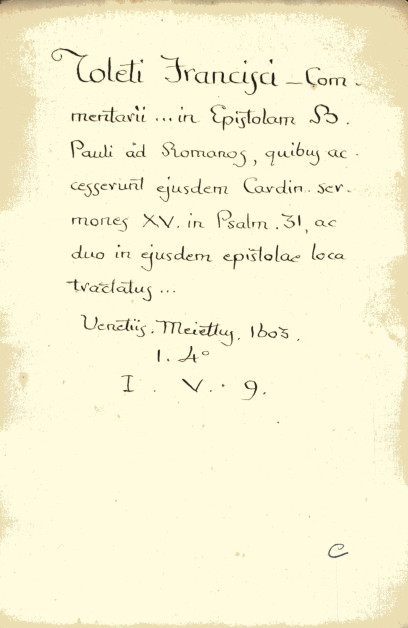 Toleti Francisci _ Com -
mentarii ... in Epistolam B.
Pauli ad Romanos, quibus ac -
cesserunt ejusdem Cardin. ser-
mones XV. in Psalm. 31, ac
duo in ejusdem epistolae loca
tractatus ...
Venetiis. Meiettus, 1603.
1. 4°
I . V. . 9.
C